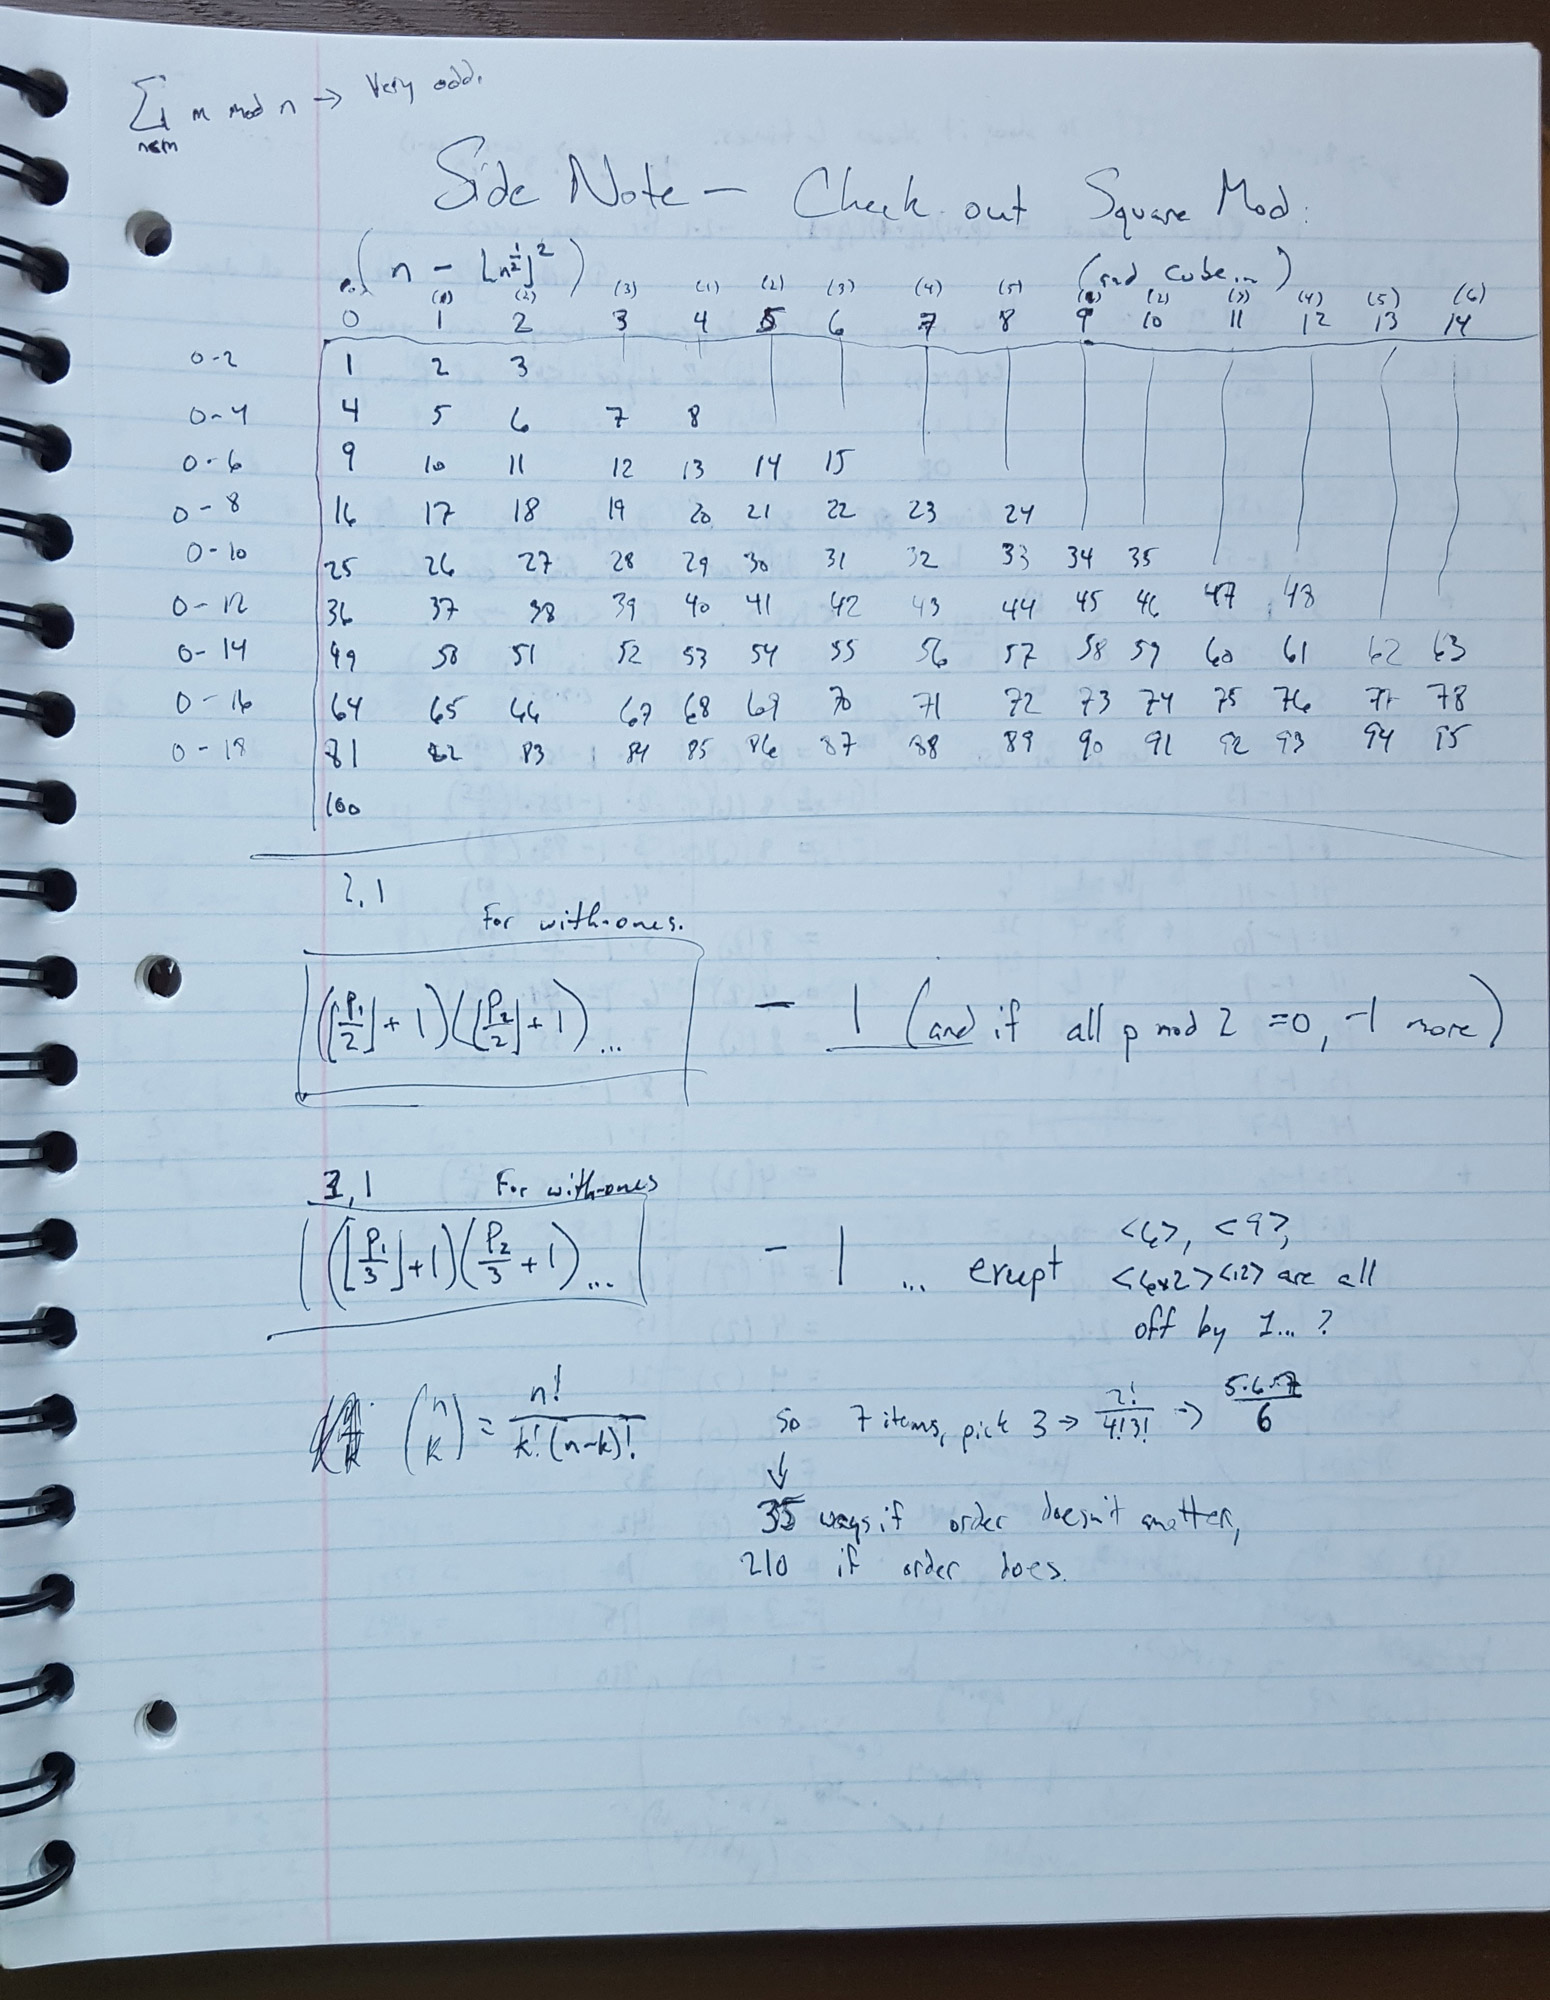 ∑ m mod n → Very odd.
n≤m
Side Note – Check out Square Mod:
(n - ⌊n^½⌋²) (and cube...)
(1) (2) (3) (1) (2) (3) (4) (5) (1) (2) (3) (4) (5) (6)
0 1 2 3 4 5 6 7 8 9 10 11 12 13 14
0-2 1 2 3
0-4 4 5 6 7 8
0-6 9 10 11 12 13 14 15
0-8 16 17 18 19 20 21 22 23 24
0-10 25 26 27 28 29 30 31 32 33 34 35
0-12 36 37 38 39 40 41 42 43 44 45 46 47 48
0-14 49 50 51 52 53 54 55 56 57 58 59 60 61 62 63
0-16 64 65 66 67 68 69 70 71 72 73 74 75 76 77 78
0-18 81 82 83 84 85 86 87 88 89 90 91 92 93 94 95
100
2,1
For with-ones.
(⌊P₁/2⌋ + 1)(⌊P₂/2⌋ + 1)... - 1 (and if all p mod 2 = 0, -1 more)
3,1 For with-ones
(⌊P₁/3⌋ + 1)(P₂/3 + 1)... - 1 ... except <6>, <9>,
<6×2> <12> are all
off by 1...?
(n k) = n!/(k!(n-k)!) so 7 items, pick 3 → 7!/(4!3!) → 5·6·7/6
↓
35 ways if order doesn't matter,
210 if order does.